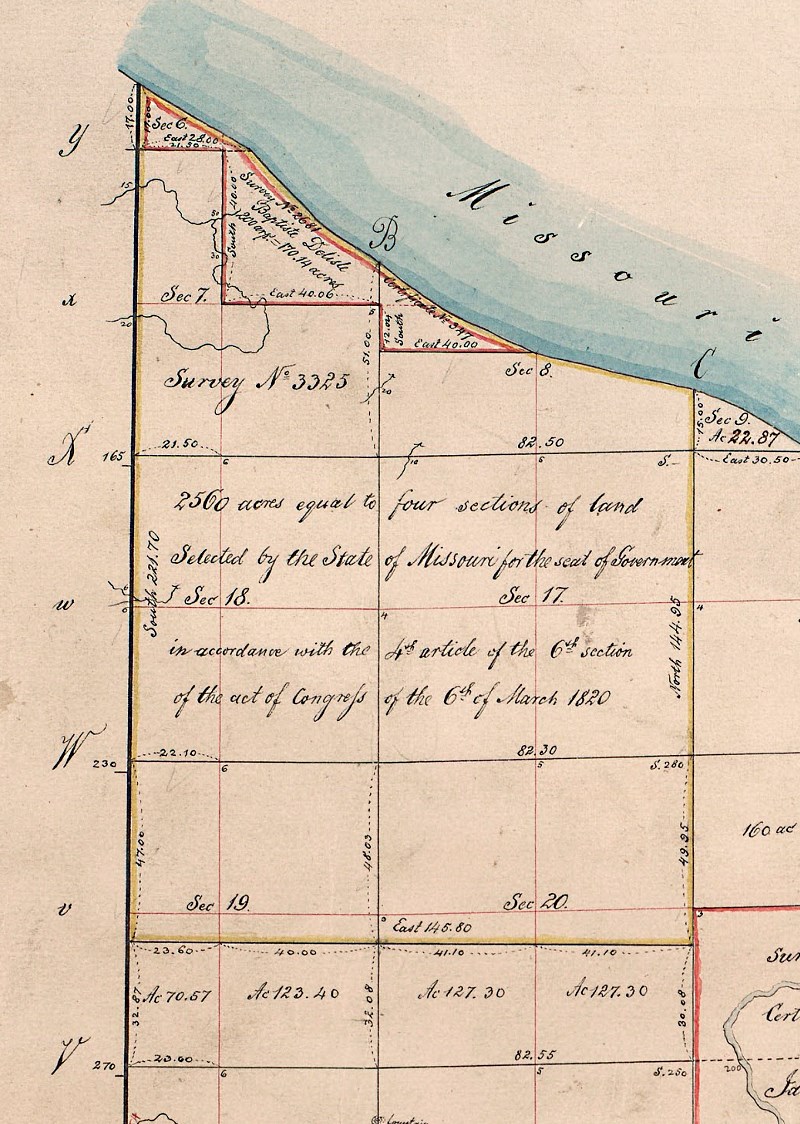 17.00
17.00
Sec 6.
East 28.00
21.50
y
Missouri
15
South 40.00
Survey No. 2681
Baptiste Delisle
200 arps = 170.14 acres
B
x
Sec 7.
East 40.06
Certificate No. 347
20
51.00
12.04 South
East 40.00
Sec 8.
C
Survey No 3325
20
15.00
Sec 9.
Ac 22.87
X'
165
21.50
82.50
S.
East 30.50
6
10
5
2560 acres equal to four sections of land
Selected by the State of Missouri for the seat of Government
w
Sec 18.
Sec 17.
4
4
South 221.70
North 144.95
in accordance with the 4th article of the 6th section
of the act of Congress of the 6th of March 1820
W
230
22.10
82.30
6
5
S. 280
47.00
48.03
49.95
160 ac
v
Sec 19.
Sec 20.
3
3
East 145.80
23.60
40.00
41.10
41.10
Sur
32.87
Ac 70.57
Ac 123.40
32.08
Ac 127.30
Ac 127.30
30.08
Cert
V
270
23.60
82.55
6
5
S. 250
200
Ja